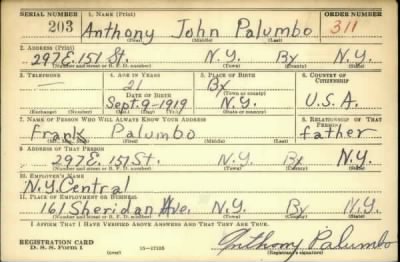 SERIAL NUMBER 1. NAME (Print) ORDER NUMBER
203 Anthony John Palumbo 311
(First) (Middle) (Last)
2. ADDRESS (Print)
297 E. 151 St. N.Y. Bx N.Y.
(Number and street or R. F. D. number) (Town) (County) (State)
3. TELEPHONE 4. AGE IN YEARS 5. PLACE OF BIRTH 6. COUNTRY OF CITIZENSHIP
21 Bx
DATE OF BIRTH (Town or county)
Sept.-9-1919 N.Y. U.S.A.
(Exchange) (Number) (Mo.) (Day) (Yr.) (State or country)
7. NAME OF PERSON WHO WILL ALWAYS KNOW YOUR ADDRESS 8. RELATIONSHIP OF THAT PERSON
Frank Palumbo father
(Mr., Mrs., Miss) (First) (Middle) (Last)
9. ADDRESS OF THAT PERSON
297 E. 151 St. N.Y. Bx N.Y.
(Number and street or R. F. D. number) (Town) (County) (State)
10. EMPLOYER'S NAME
N.Y. Central
11. PLACE OF EMPLOYMENT OR BUSINESS
161 Sheridan Ave. N.Y. Bx N.Y.
(Number and street or R. F. D. number) (Town) (County) (State)
I AFFIRM THAT I HAVE VERIFIED ABOVE ANSWERS AND THAT THEY ARE TRUE.
REGISTRATION CARD
D. S. S. Form 1 (over) 16—17105 Anthony Palumbo
(Registrant's signature)